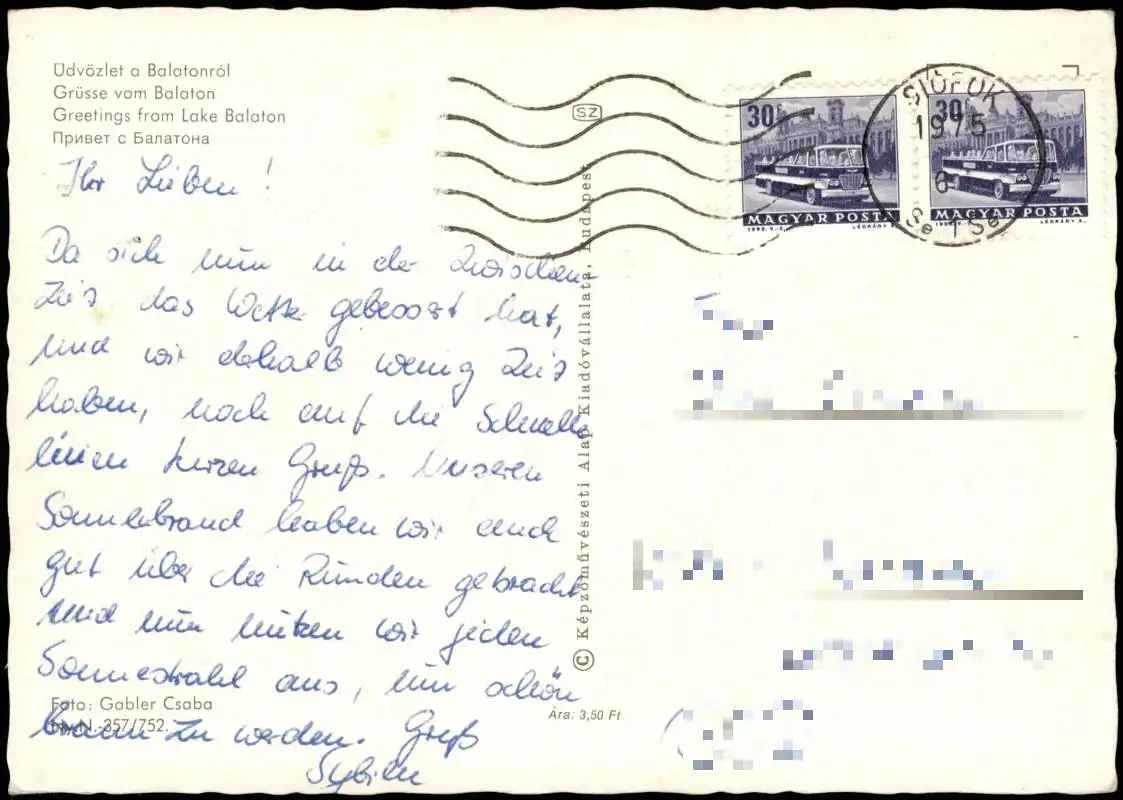 Üdvözlet a Balatonról
Grüsse vom Balaton
Greetings from Lake Balaton
Привет с Балатона
Ihr Lieben!
Da sich nun in der Zwischen-
zeit das Wetter gebessert hat,
und wir deshalb wenig Zeit
haben, noch auf die Schnelle
einen kurzen Gruß. Unseren
Sonnenbrand haben wir auch
gut über die Runden gebracht
und nun nützen wir jeden
Sonnestrahl aus, um schön
braun zu werden. Gruß
Foto: Gabler Csaba
-357/752.
SZ
© Képzőművészeti Alap Kiadóvállalata, Budapest
Ára: 3,50 Ft
30f
MAGYAR POSTA
LÉGRÁDY S.
30f
MAGYAR POSTA
LÉGRÁDY S.
SIÓFOK
1975